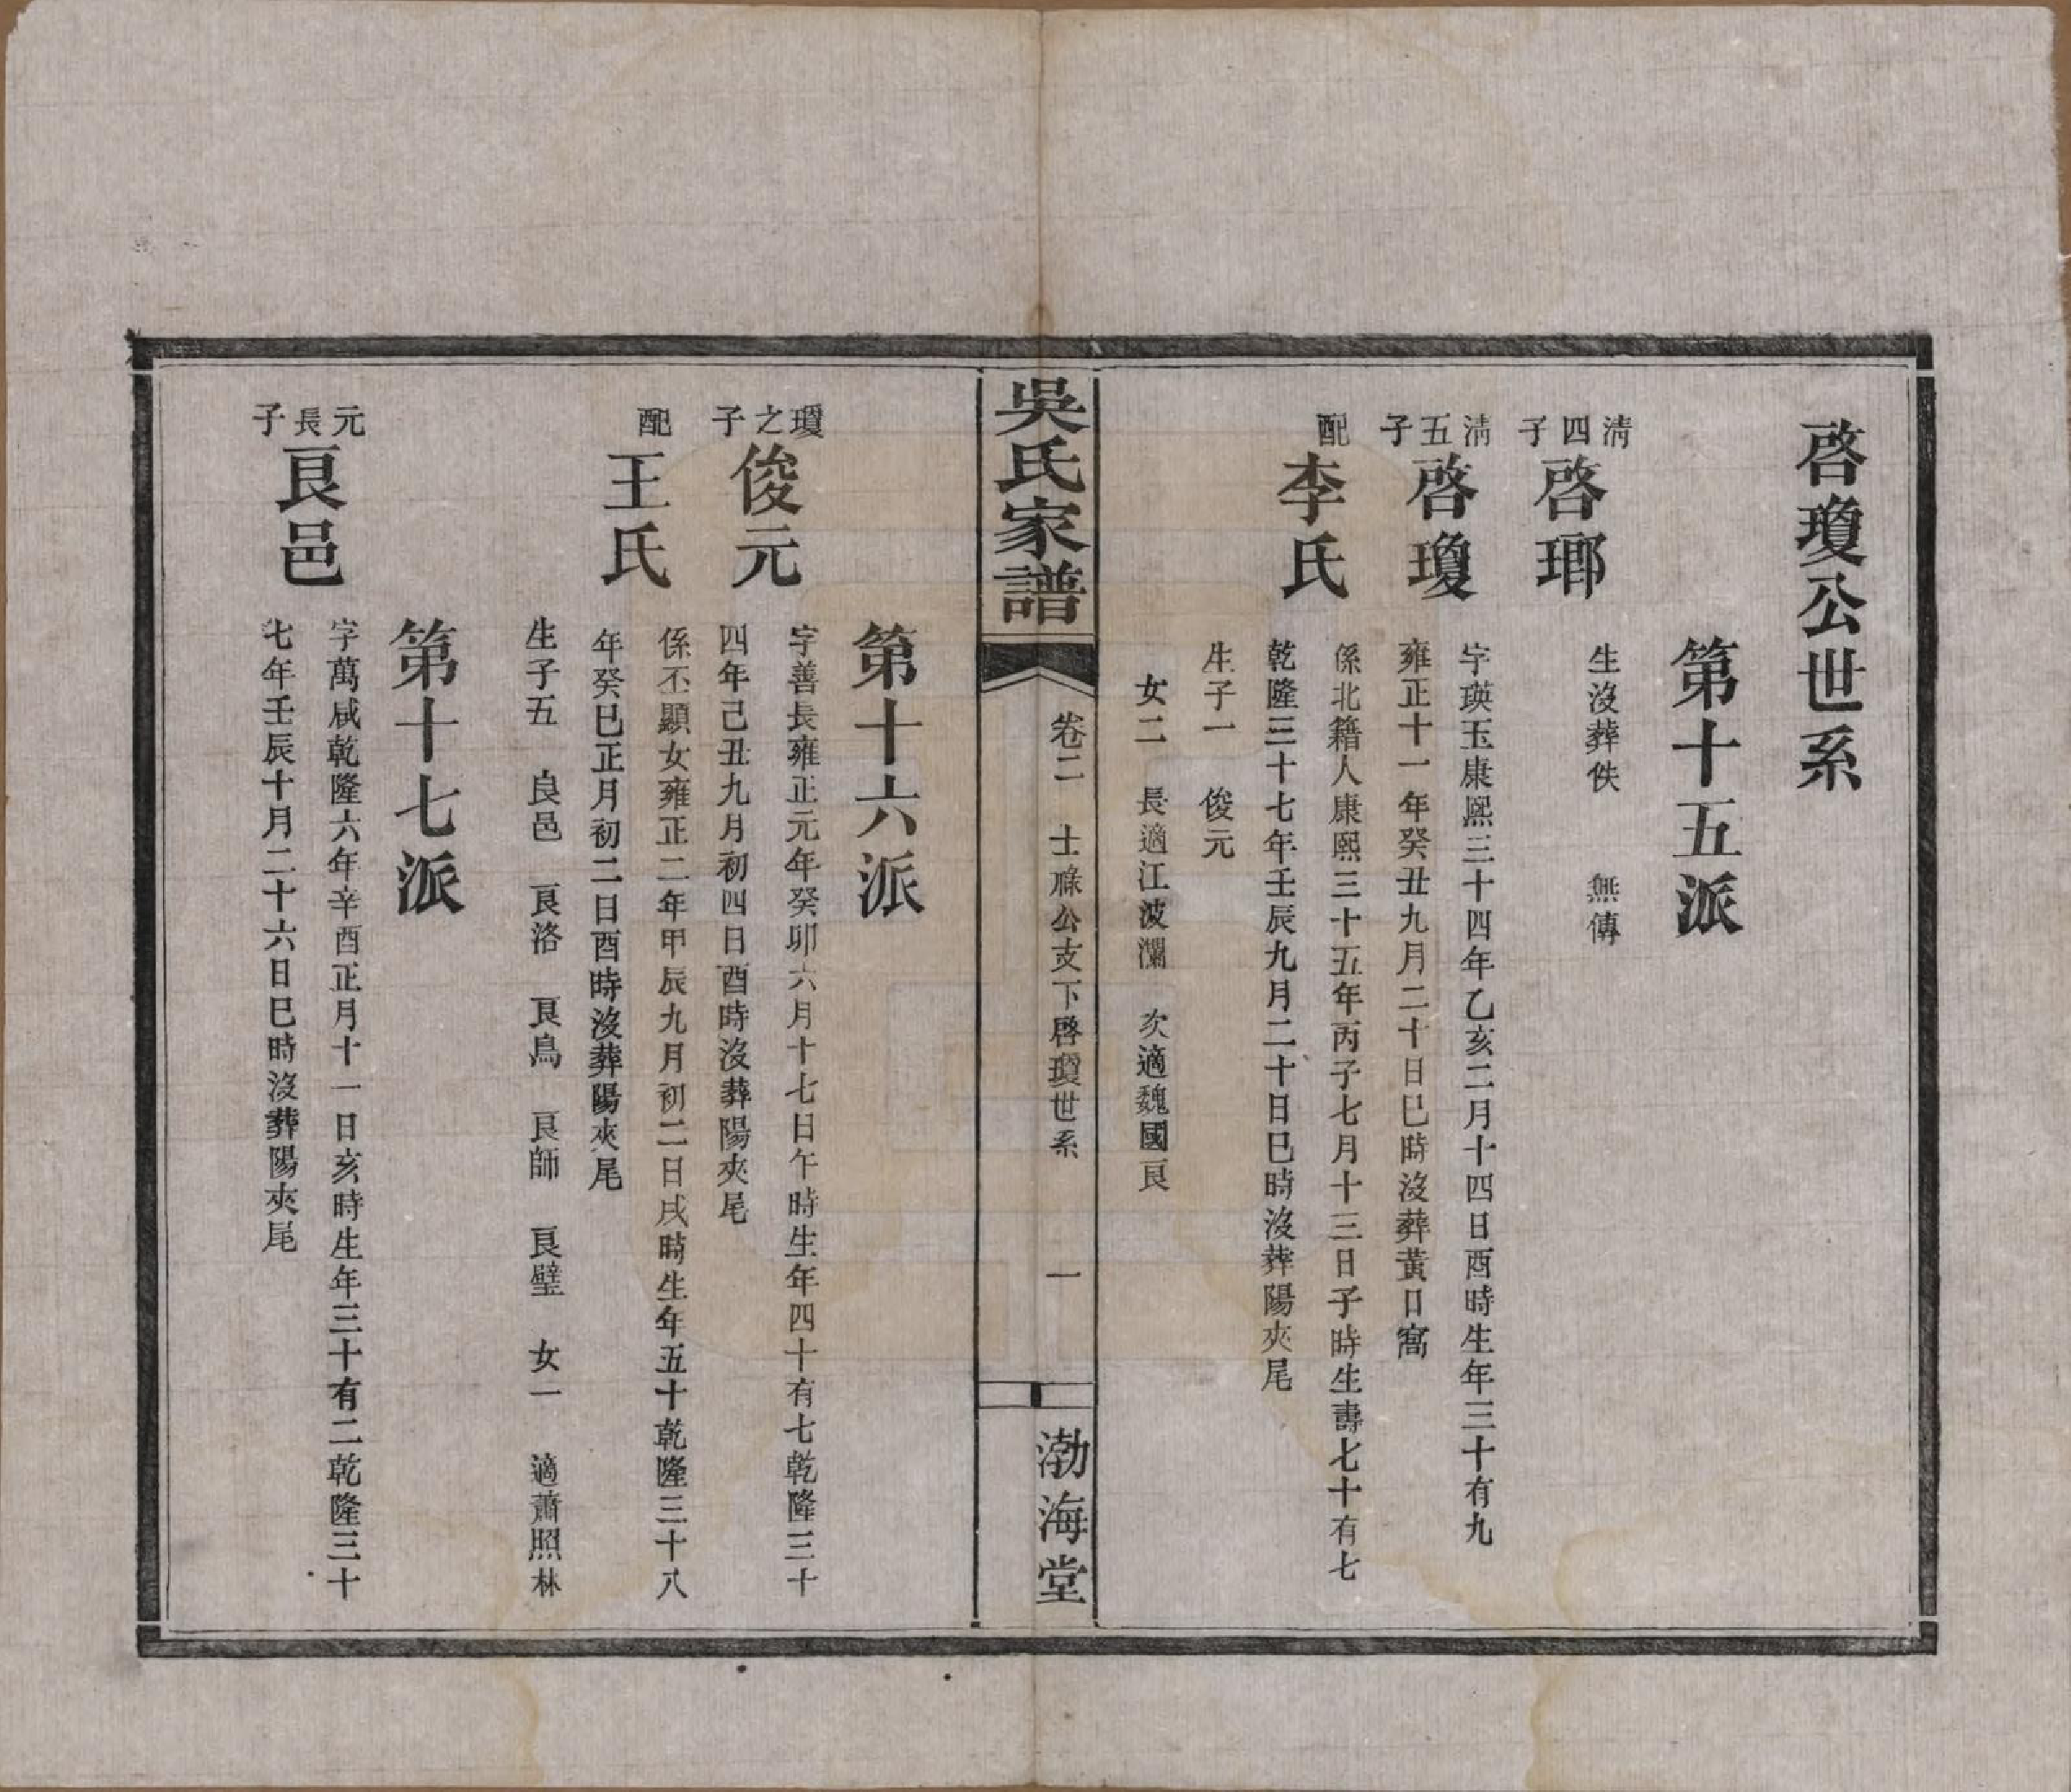 啓瓊公世系
第十五派
清四子
啓瑘
生沒葬佚　無傳
清五子
啓瓊
字瑛玉康熙三十四年乙亥二月十四日酉時生年三十有九
雍正十一年癸丑九月二十日巳時沒葬黃日窩
配
李氏
係北籍人康熙三十五年丙子七月十三日子時生壽七十有七
乾隆三十七年壬辰九月二十日巳時沒葬陽夾尾
生子一　俊元
女二　長適江波瀾　次適魏國良
吳氏家譜
卷二　士祿公支下啓瓊世系　一
渤海堂
第十六派
瓊之子
俊元
字善長雍正元年癸卯六月十七日午時生年四十有七乾隆三十
四年己丑九月初四日酉時沒葬陽夾尾
配
王氏
係丕顯女雍正二年甲辰九月初二日戌時生年五十乾隆三十八
年癸巳正月初二日酉時沒葬陽夾尾
生子五　良邑　良洛　良鳥　良師　良璧　女一　適蕭照林
第十七派
元長子
良邑
字萬咸乾隆六年辛酉正月十一日亥時生年三十有二乾隆三十
七年壬辰十月二十六日巳時沒葬陽夾尾